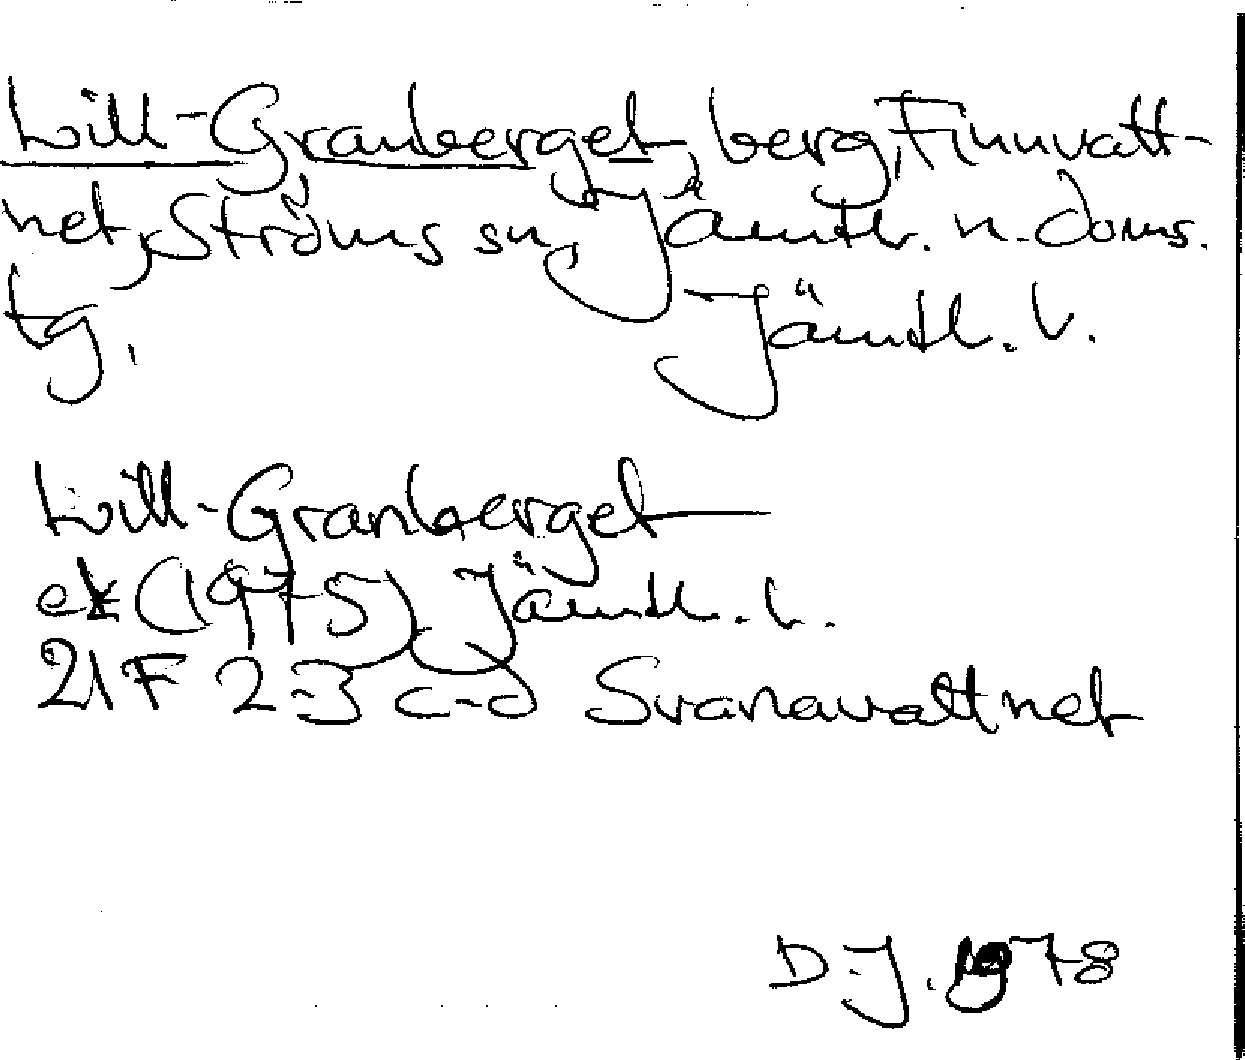 Lill-Granberget, berg, Finnvatt-
net, Ströms sn, Jämtl. n. doms.
tg. Jämtl. l.
Lill-Granberget
ek (1975) Jämtl. l.
21F 2-3 c-d Svanavattnet
D.J. 1978